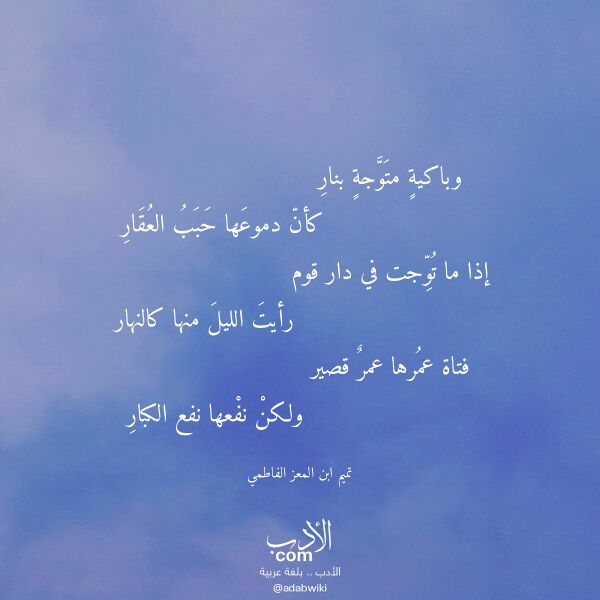 وباكيةٍ متَوَّجةٍ بنارِ
كأنّ دموعَها حَبَبُ العُقَارِ
إذا ما تُوِّجت في دار قوم
رأيتَ الليلَ منها كالنهار
فتاة عمُرها عمرٌ قصير
ولكنْ نفْعها نفع الكبارِ
تميم ابن المعز الفاطمي
الأدب
com
الأدب .. بلغة عربية
@adabwiki